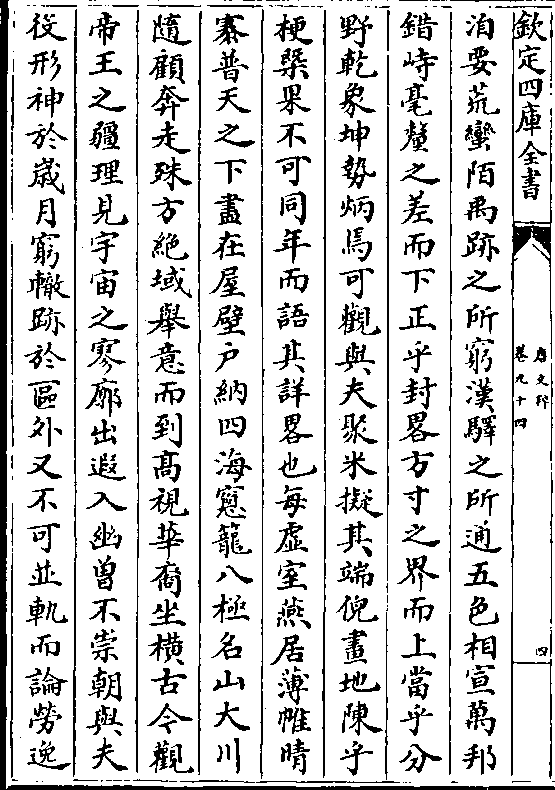 欽定四庫全書
唐文粹
卷九十四
四
洎要荒蠻陌禹跡之所窮漢驛之所通五色相宣萬邦
錯峙毫釐之差而下正乎封畧方寸之界而上當乎分
野乾象坤勢炳焉可觀與夫聚米擬其端倪畫地陳乎
梗槩果不可同年而語其詳畧也每虚室燕居薄帷晴
褰普天之下盡在屋壁户納四海窓籠八極名山大川
隨顧奔走殊方絶域舉意而到髙視華裔坐横古今觀
帝王之疆理見宇宙之寥廓出遐入幽曽不崇朝與夫
役形神於歳月窮轍跡於區外又不可並軌而論勞逸